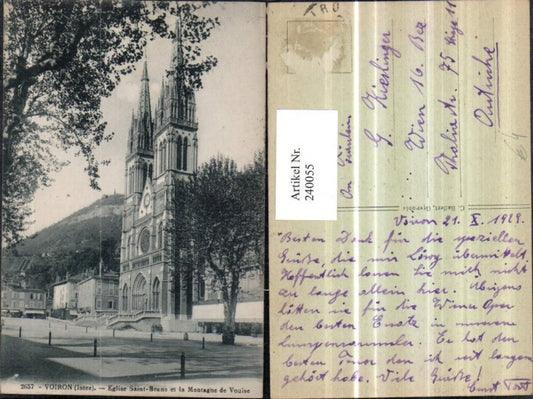 2657 - VOIRON (Isère). - Eglise Saint-Bruno et la Montagne de Vouise
TRU
An Fräulein
G. Kieslinger
Wien 16. Bez
Thaliastr. 75
Autriche
Artikel Nr.
240055
Voiron 21. X. 1929.
"Besten Dank für die speziellen
Grüße, die mir Lörg übermittelt.
Hoffentlich lassen Sie mich nicht
zu lange allein hier. Übrigens
hätten sie für die Wiener Oper
den besten Ersatz in unserem
Lumpensammler. Es hat den
besten Tenor den ich seit langem
gehört habe. Viele Grüße!
Ernst